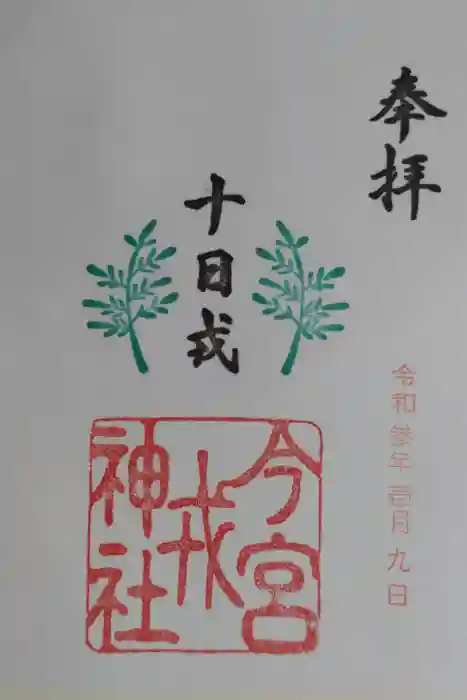 奉拝
十日戎
令和参年壱月九日
今宮
戎
神社